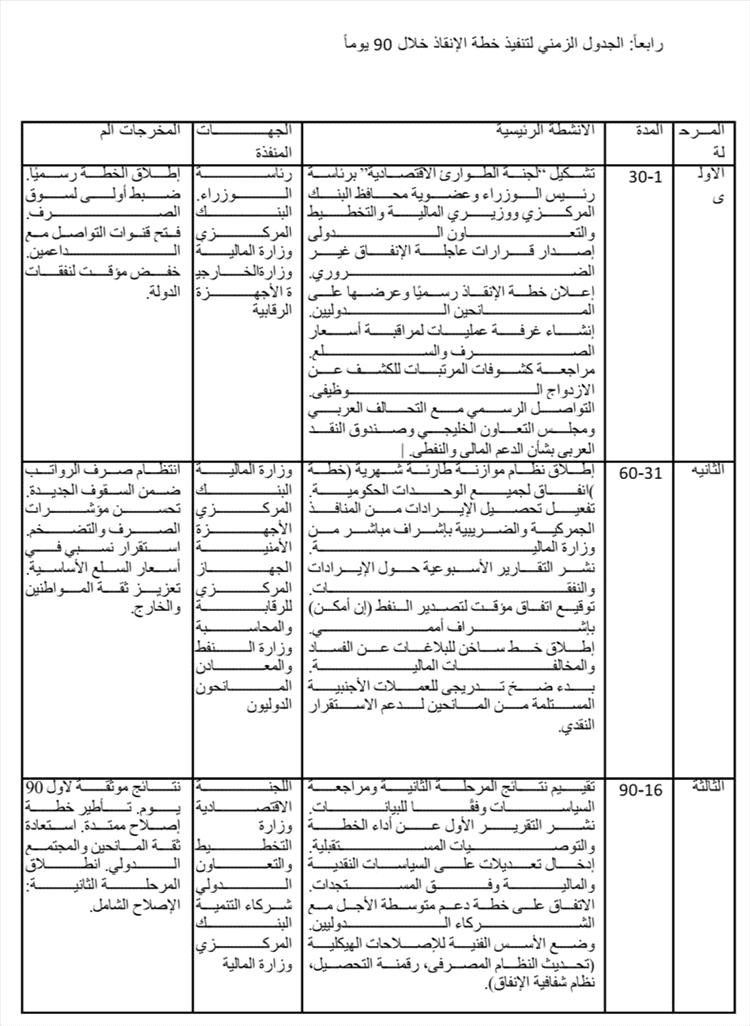 رابعاً: الجدول الزمني لتنفيذ خطة الإنقاذ خلال 90 يوماً
المرحلة
المدة
الانشطة الرئيسية
الجهات
المنفذة
المخرجات الم
الاولى
30-1
تشكيل "لجنة الطوارئ الاقتصادية" برئاسة
رئيس الوزراء وعضوية محافظ البنك
المركزي ووزيري المالية والتخطيط
والتعاون الدولي
إصدار قرارات عاجلة الإنفاق غير
الضروري.
إعلان خطة الإنقاذ رسميًا وعرضها على
المانحين الدوليين.
إنشاء غرفة عمليات لمراقبة أسعار
الصرف والسلع.
مراجعة كشوفات المرتبات للكشف عن
الازدواج الوظيفي.
التواصل الرسمي مع التحالف العربي
ومجلس التعاون الخليجي وصندوق النقد
العربي بشأن الدعم المالي والنفطي. |
رئاسة
الوزراء.
البنك
المركزي
وزارة المالية
وزارةالخارجي
ة الأجهزة
الرقابية
إطلاق الخطة رسميًا.
ضبط أولي لسوق
الصرف.
فتح قنوات التواصل مع
الداعمين.
خفض مؤقت لنفقات
الدولة.
الثانيه
60-31
إطلاق نظام موازنة طارئة شهرية (خطة
)انفاق لجميع الوحدات الحكومية.
تفعيل تحصيل الإيرادات من المنافذ
الجمركية والضريبية بإشراف مباشر من
وزارة المالية.
نشر التقارير الأسبوعية حول الإيرادات
والنفقات.
توقيع اتفاق مؤقت لتصدير النفط (إن أمكن)
بإشراف أممي.
إطلاق خط ساخن للبلاغات عن الفساد
والمخالفات المالية.
بدء ضخ تدريجي للعملات الأجنبية
المستلمة من المانحين لدعم الاستقرار
النقدي.
وزارة المالية
البنك
المركزي
الأجهزة
الأمنية
الجهاز
المركزي
للرقابة
والمحاسبة
وزارة النفط
والمعادن
المانحون
الدوليون
انتظام صرف الرواتب
ضمن السقوف الجديدة.
تحسن مؤشرات
الصرف والتضخم.
استقرار نسبي في
أسعار السلع الأساسية.
تعزيز ثقة المواطنين
والخارج.
الثالثة
90-16
تقييم نتائج المرحلة الثانية ومراجعة
السياسات وفقًا للبيانات.
نشر التقرير الأول عن أداء الخطة
والتوصيات المستقبلية.
إدخال تعديلات على السياسات النقدية
والمالية وفق المستجدات.
الاتفاق على خطة دعم متوسطة الأجل مع
الشركاء الدوليين.
وضع الأسس الفنية للإصلاحات الهيكلية
(تحديث النظام المصرفي، رقمنة التحصيل،
نظام شفافية الإنفاق).
اللجنة
الاقتصادية
وزارة
التخطيط
والتعاون
الدولي
شركاء التنمية
البنك
المركزي
وزارة المالية
نتائج موثقة لاول 90
يوم. تأطير خطة
إصلاح ممتدة. استعادة
ثقة المانحين والمجتمع
الدولي. انطلاق
المرحلة الثانية:
الإصلاح الشامل.